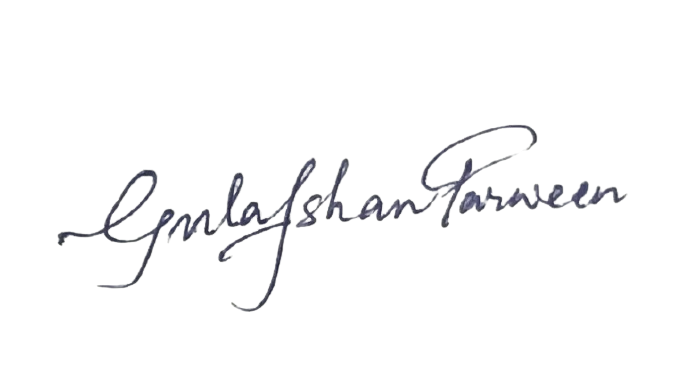 Gulafshan Parween